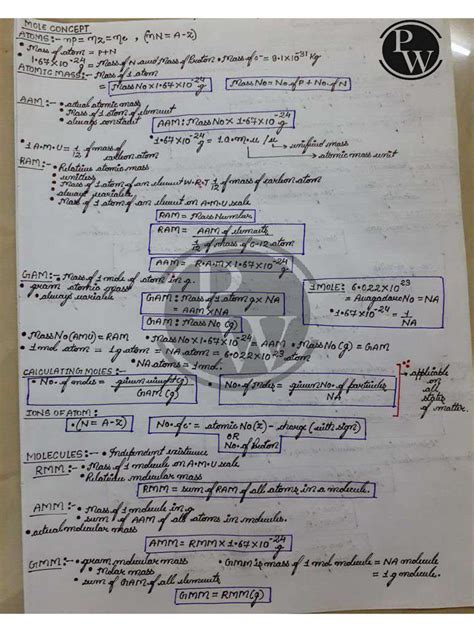 MOLE CONCEPT
ATOMS:- np = mz = me, (nN = A-Z)
• Mass of atom = P+N
• 1.67×10^-24 g = Mass of N and Mass of Proton • Mass of e^- = 9.1×10^-31 Kg
ATOMIC MASS:- Mass of 1 atom
= Mass No × 1.67×10^-24 g
Mass No = No. of P + No. of N
PW
AAM:- • actual atomic mass
• Mass of 1 atom of element
• always constant
AAM: Mass No × 1.67×10^-24 g
• 1.67×10^-24 g = 1 a.m.u / u → unified mass
→ atomic mass unit
• 1 A.M.U = 1/12 of mass of carbon atom
RAM:- • Relative atomic mass
• unitless
• Mass of 1 atom of an element W.R.T 1/12 of mass of carbon atom
• always variable
• Mass of 1 atom of an element on A.M.U scale
RAM = Mass Number
RAM = AAM of elements / 1/12 of mass of C-12 atom
AAM = R.A.M × 1.67×10^-24 g
GAM:- • Mass of 1 mole of atom in g.
• gram atomic mass
• always variable
GAM: Mass of 1 atom g × NA
= AAM × NA
GAM: Mass No (g)
1 MOLE: 6.022×10^23
= Avagadaro No = NA
• 1.67×10^-24 = 1/NA
• Mass No (AMU) = RAM • Mass No × 1.67×10^-24 = AAM • Mass No (g) = GAM
• 1 mol atom = 1 g atom = NA atom
• NA atoms = 1 mol.
CALCULATING MOLES:-
• No. of moles = given weight (g) / GAM (g)
No. of Moles = given No. of particles / NA
• applicable on all states of matter.
IONS OF ATOM:-
• (N = A-Z)
No. of e^- = atomic No (Z) - charge (with sign)
OR
No. of Proton
MOLECULES:- • Independent existence
RMM:- • Mass of 1 molecule on A.M.U scale
• Relative molecular mass
RMM = sum of RAM of all atoms in a molecule.
AMM:- • Mass of 1 molecule in g.
• sum of AAM of all atoms in molecules.
• actual molecular mass
AMM = RMM × 1.67×10^-24 g
GMM:- • gram molecular mass
• Molar mass
• sum of GAM of all elements
GMM is mass of 1 mol molecule = NA molecule
= 1 g molecule.
GMM = RMM (g)
PW